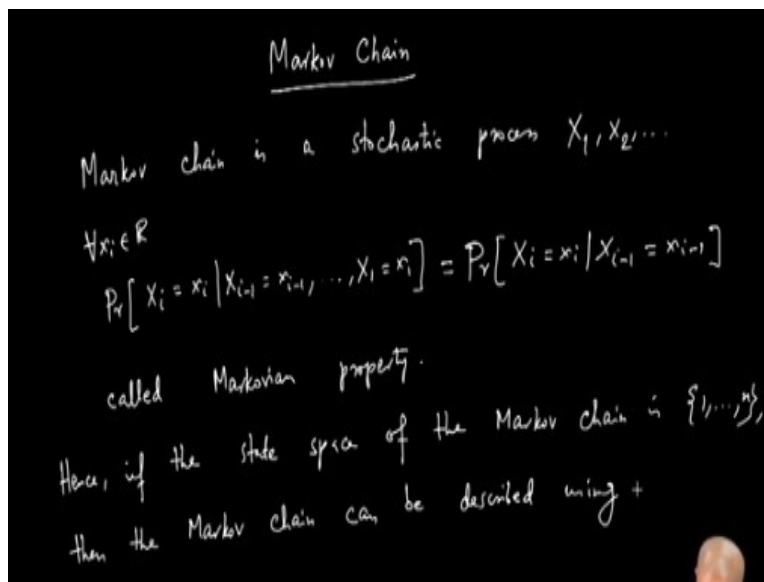 Markov Chain
Markov chain is a stochastic process X₁, X₂, ...
∀xᵢ ∈ R
Pr[Xᵢ = xᵢ | Xᵢ₋₁ = xᵢ₋₁, ..., X₁ = xᵢ] = Pr[Xᵢ = xᵢ | Xᵢ₋₁ = xᵢ₋₁]
called Markovian property.
Hence, if the state space of the Markov chain is {1,...,n},
then the Markov chain can be described using